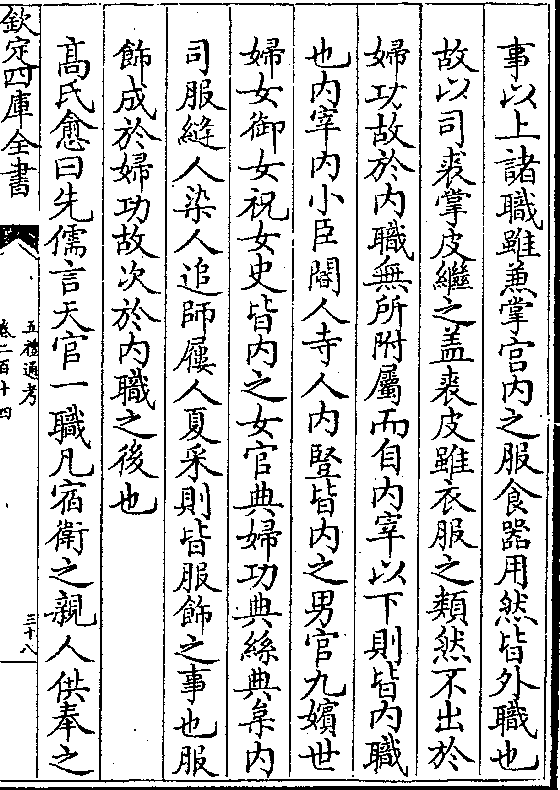 事以上諸職雖兼掌宮内之服食器用然皆外職也
故以司裘掌皮繼之盖裘皮雖衣服之類然不出於
婦功故於内職無所附屬而自内宰以下則皆内職
也内宰内小臣閽人寺人内豎皆内之男官九嬪世
婦女御女祝女史皆内之女官典婦功典絲典枲内
司服縫人染人追師屨人夏采則皆服飾之事也服
飾成於婦功故次於内職之後也
高氏愈曰先儒言天官一職凡宿衛之親人供奉之
欽定四庫全書
五禮通考
卷二百十四
三十八